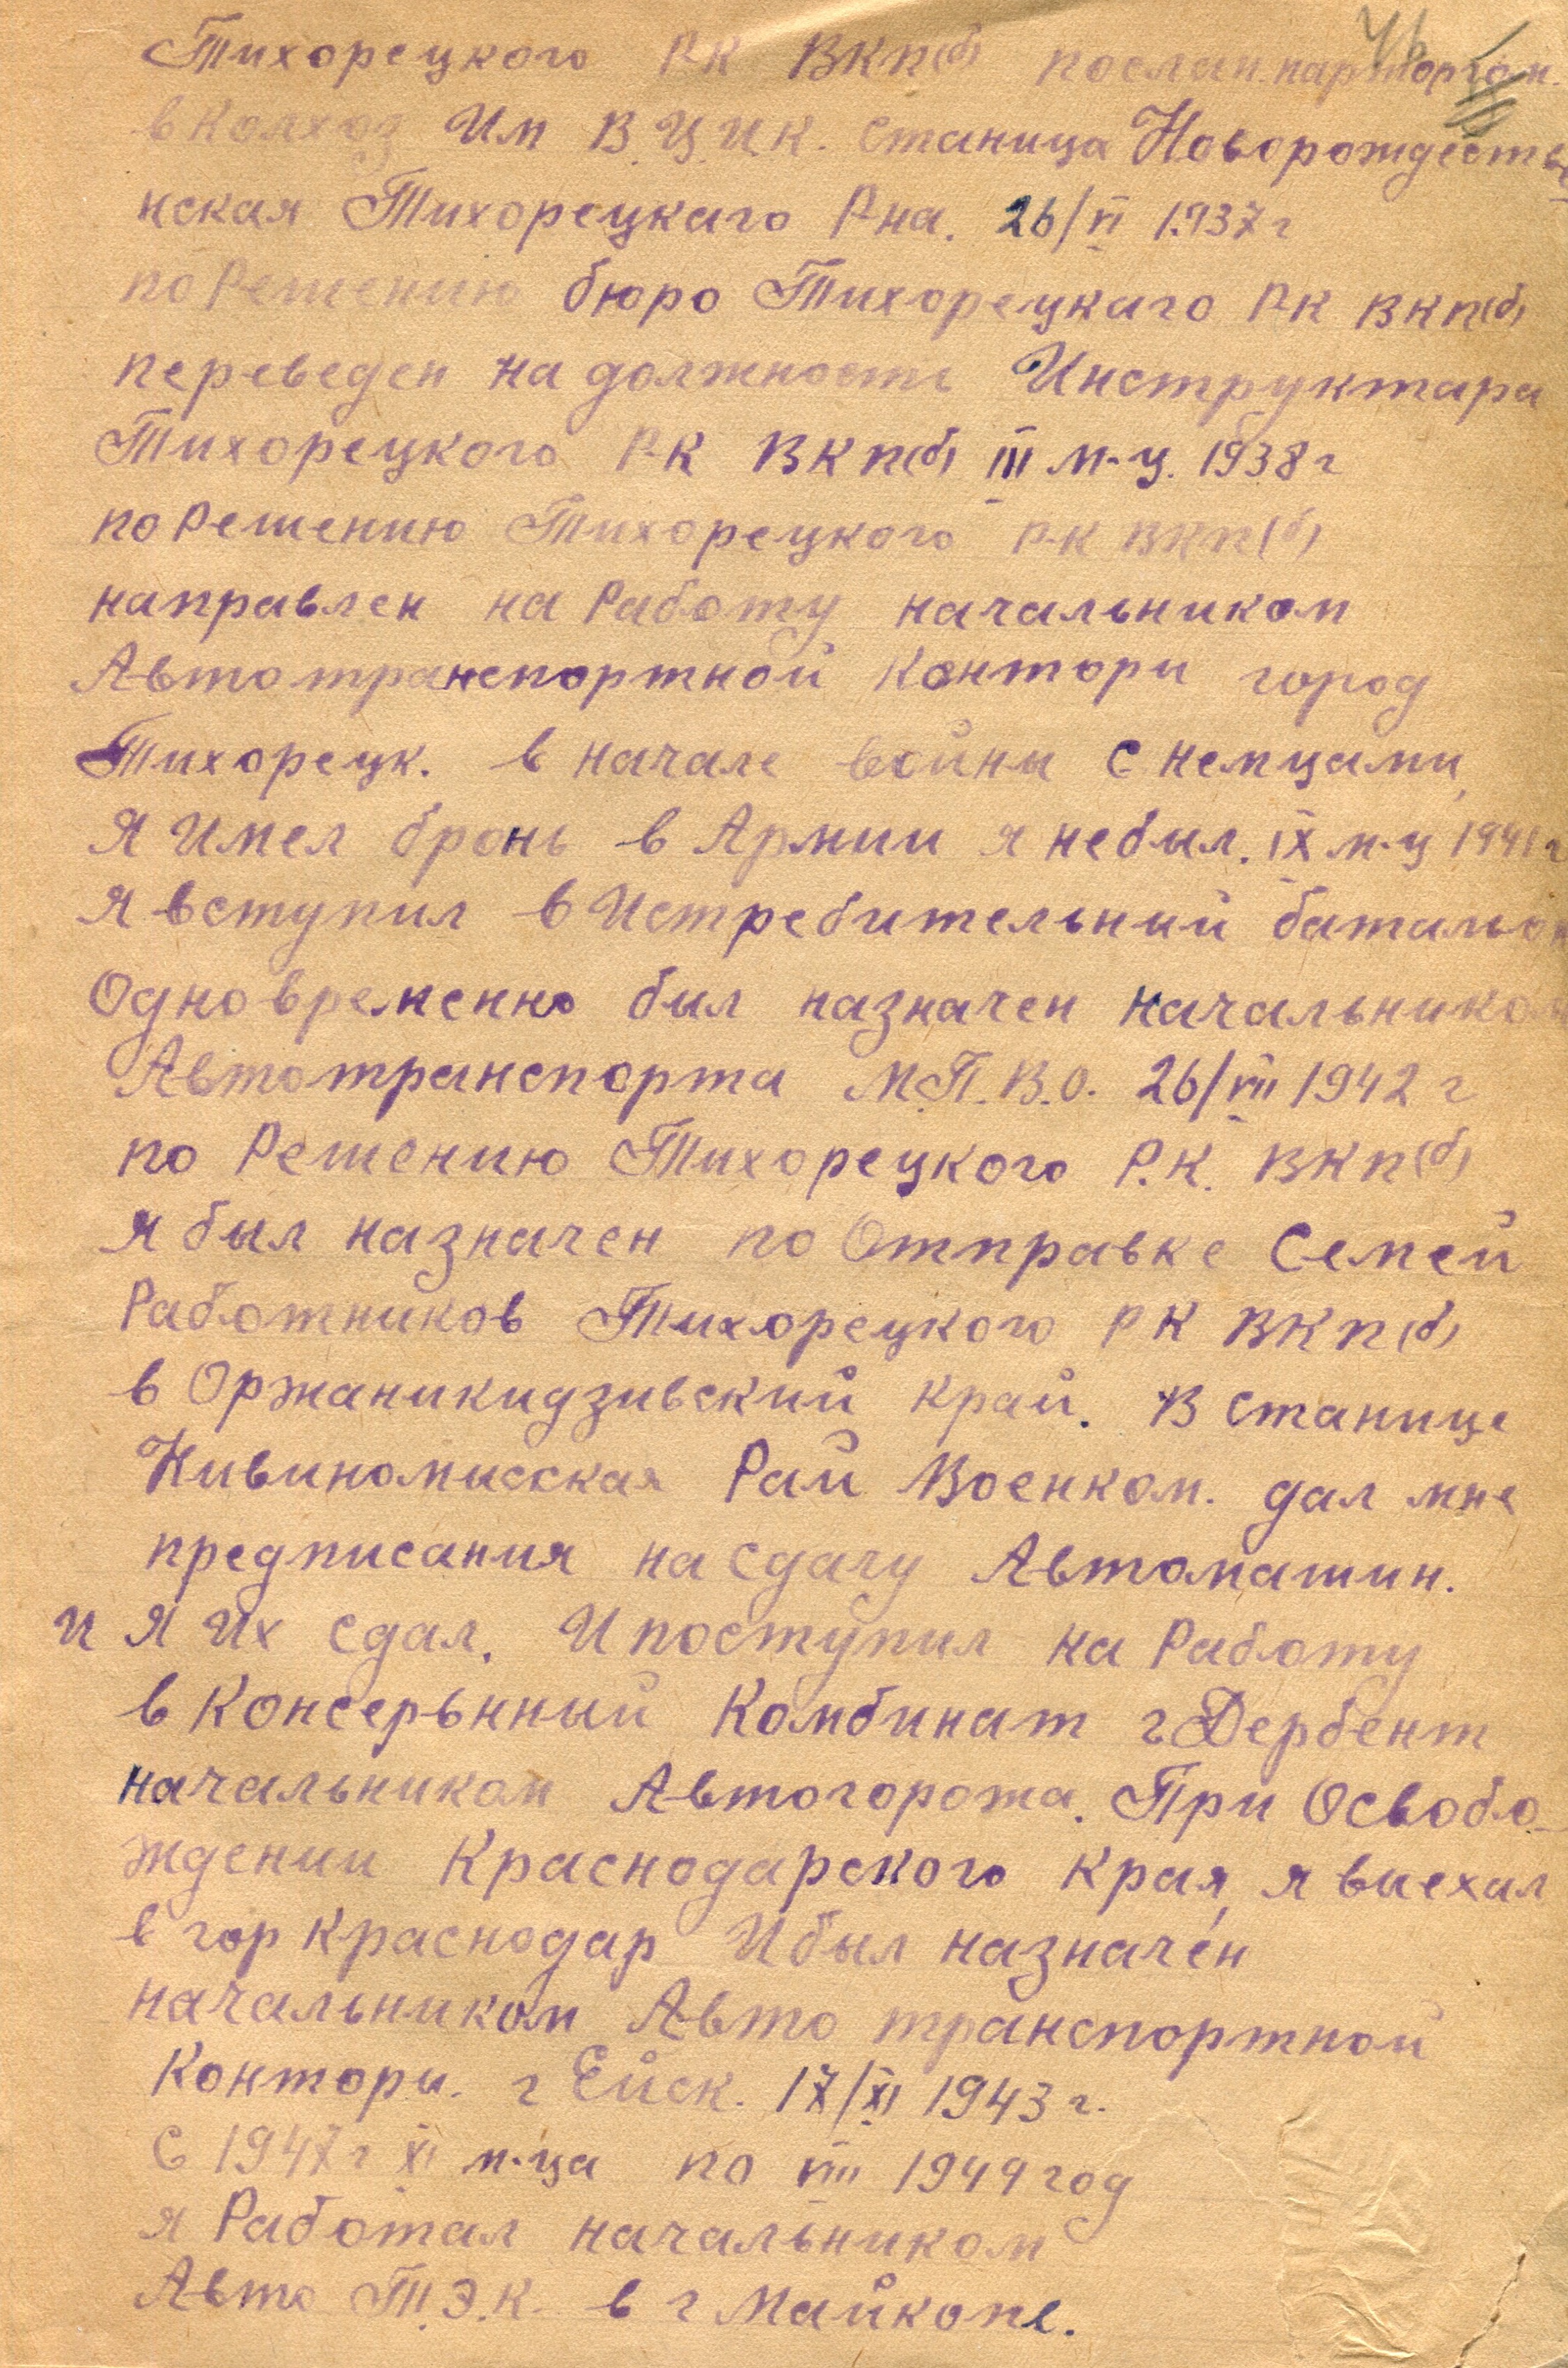 Тихорецкого РК ВКП(б) послан парторгом
в Колхоз Им В.Ц.И.К. Станица Новорождестве
нская Тихорецкаго Р-на. 26/VI 1937 г
по Решению бюро Тихорецкаго РК ВКП(б)
переведен на должность Инструктара
Тихорецкого РК ВКП(б) III м-ц. 1938 г
по Решению Тихорецкого РК ВКП(б)
направлен на Работу начальником
Автотранспортной Контори город
Тихорецк. в начале войны с немцами,
Я Имел бронь в Армии я небыл. IX м-ц 1941 г
Я вступил в Истребительний батальон
Одновременно был назначен начальником
Автотранспорта М.П.В.О. 26/VII 1942 г
по Решению Тихорецкого Р.К. ВКП(б)
я был назначен по Отправке Семей
Работников Тихорецкого РК ВКП(б)
в Оржаникидзивский край. В станице
Нивиномисская Рай Военком. дал мне
предписания на сдачу Автомашин.
и Я Их сдал. И поступил на Работу
в Консервнный Комбинат г Дербент
начальником Автогорожа. При Освобо-
ждении Краснодарского Края, я виехал
в гор Краснодар И был назначен
начальником Авто транспортной
Контори. г Ейск. 17/XI 1943 г.
С 1947 г XI м-ца по VIII 1949 год
я Работал начальником
Авто Т.Э.К. в г Майкопе.